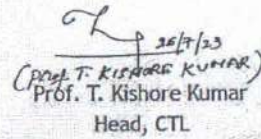 26/7/23
(PROF. T. KISHORE KUMAR)
Prof. T. Kishore Kumar
Head, CTL